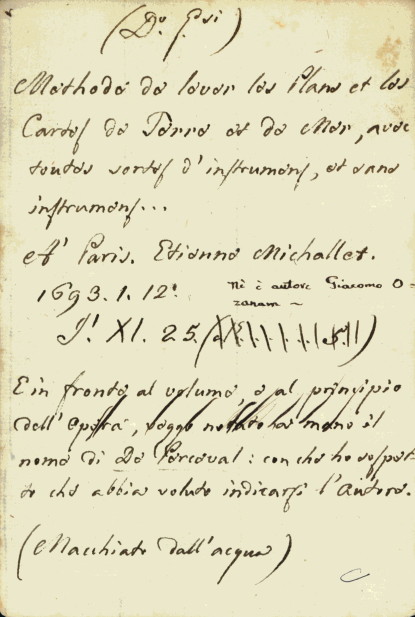 (Do. Gsi)
Methode de lever les Plans et les
Cartes de Terre et de Mer, avec
toutes sortes d'instrumens, et sans
instrumens...
A' Paris. Etienne Michallet.
1693. 1. 12°.
Nè è autore Giacomo O=
zanam ~
XI. 25.
E in fronte al volume, e al principio
dell'opera, veggo notato a mano il
nome di De Porceval: con che ho sospet-
to che abbia voluto indicarsi l'Autore.
(Macchiato dall'acqua)